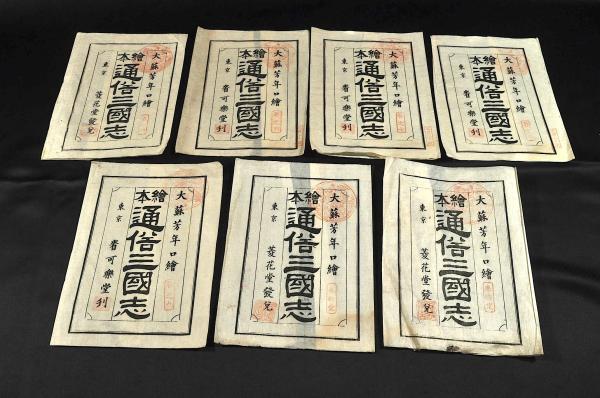 大蘇芳年口繪
繪本
通俗三國志
東京
菱花堂發兌
大蘇芳年口繪
繪本
通俗三國志
東京
耆可樂堂刊
大蘇芳年口繪
繪本
通俗三國志
東京
耆可樂堂刊
大蘇芳年口繪
繪本
通俗三國志
東京
菱花堂發兌
大蘇芳年口繪
繪本
通俗三國志
東京
耆可樂堂刊
大蘇芳年口繪
繪本
通俗三國志
東京
菱花堂發兌
大蘇芳年口繪
繪本
通俗三國志
東京
菱花堂發兌